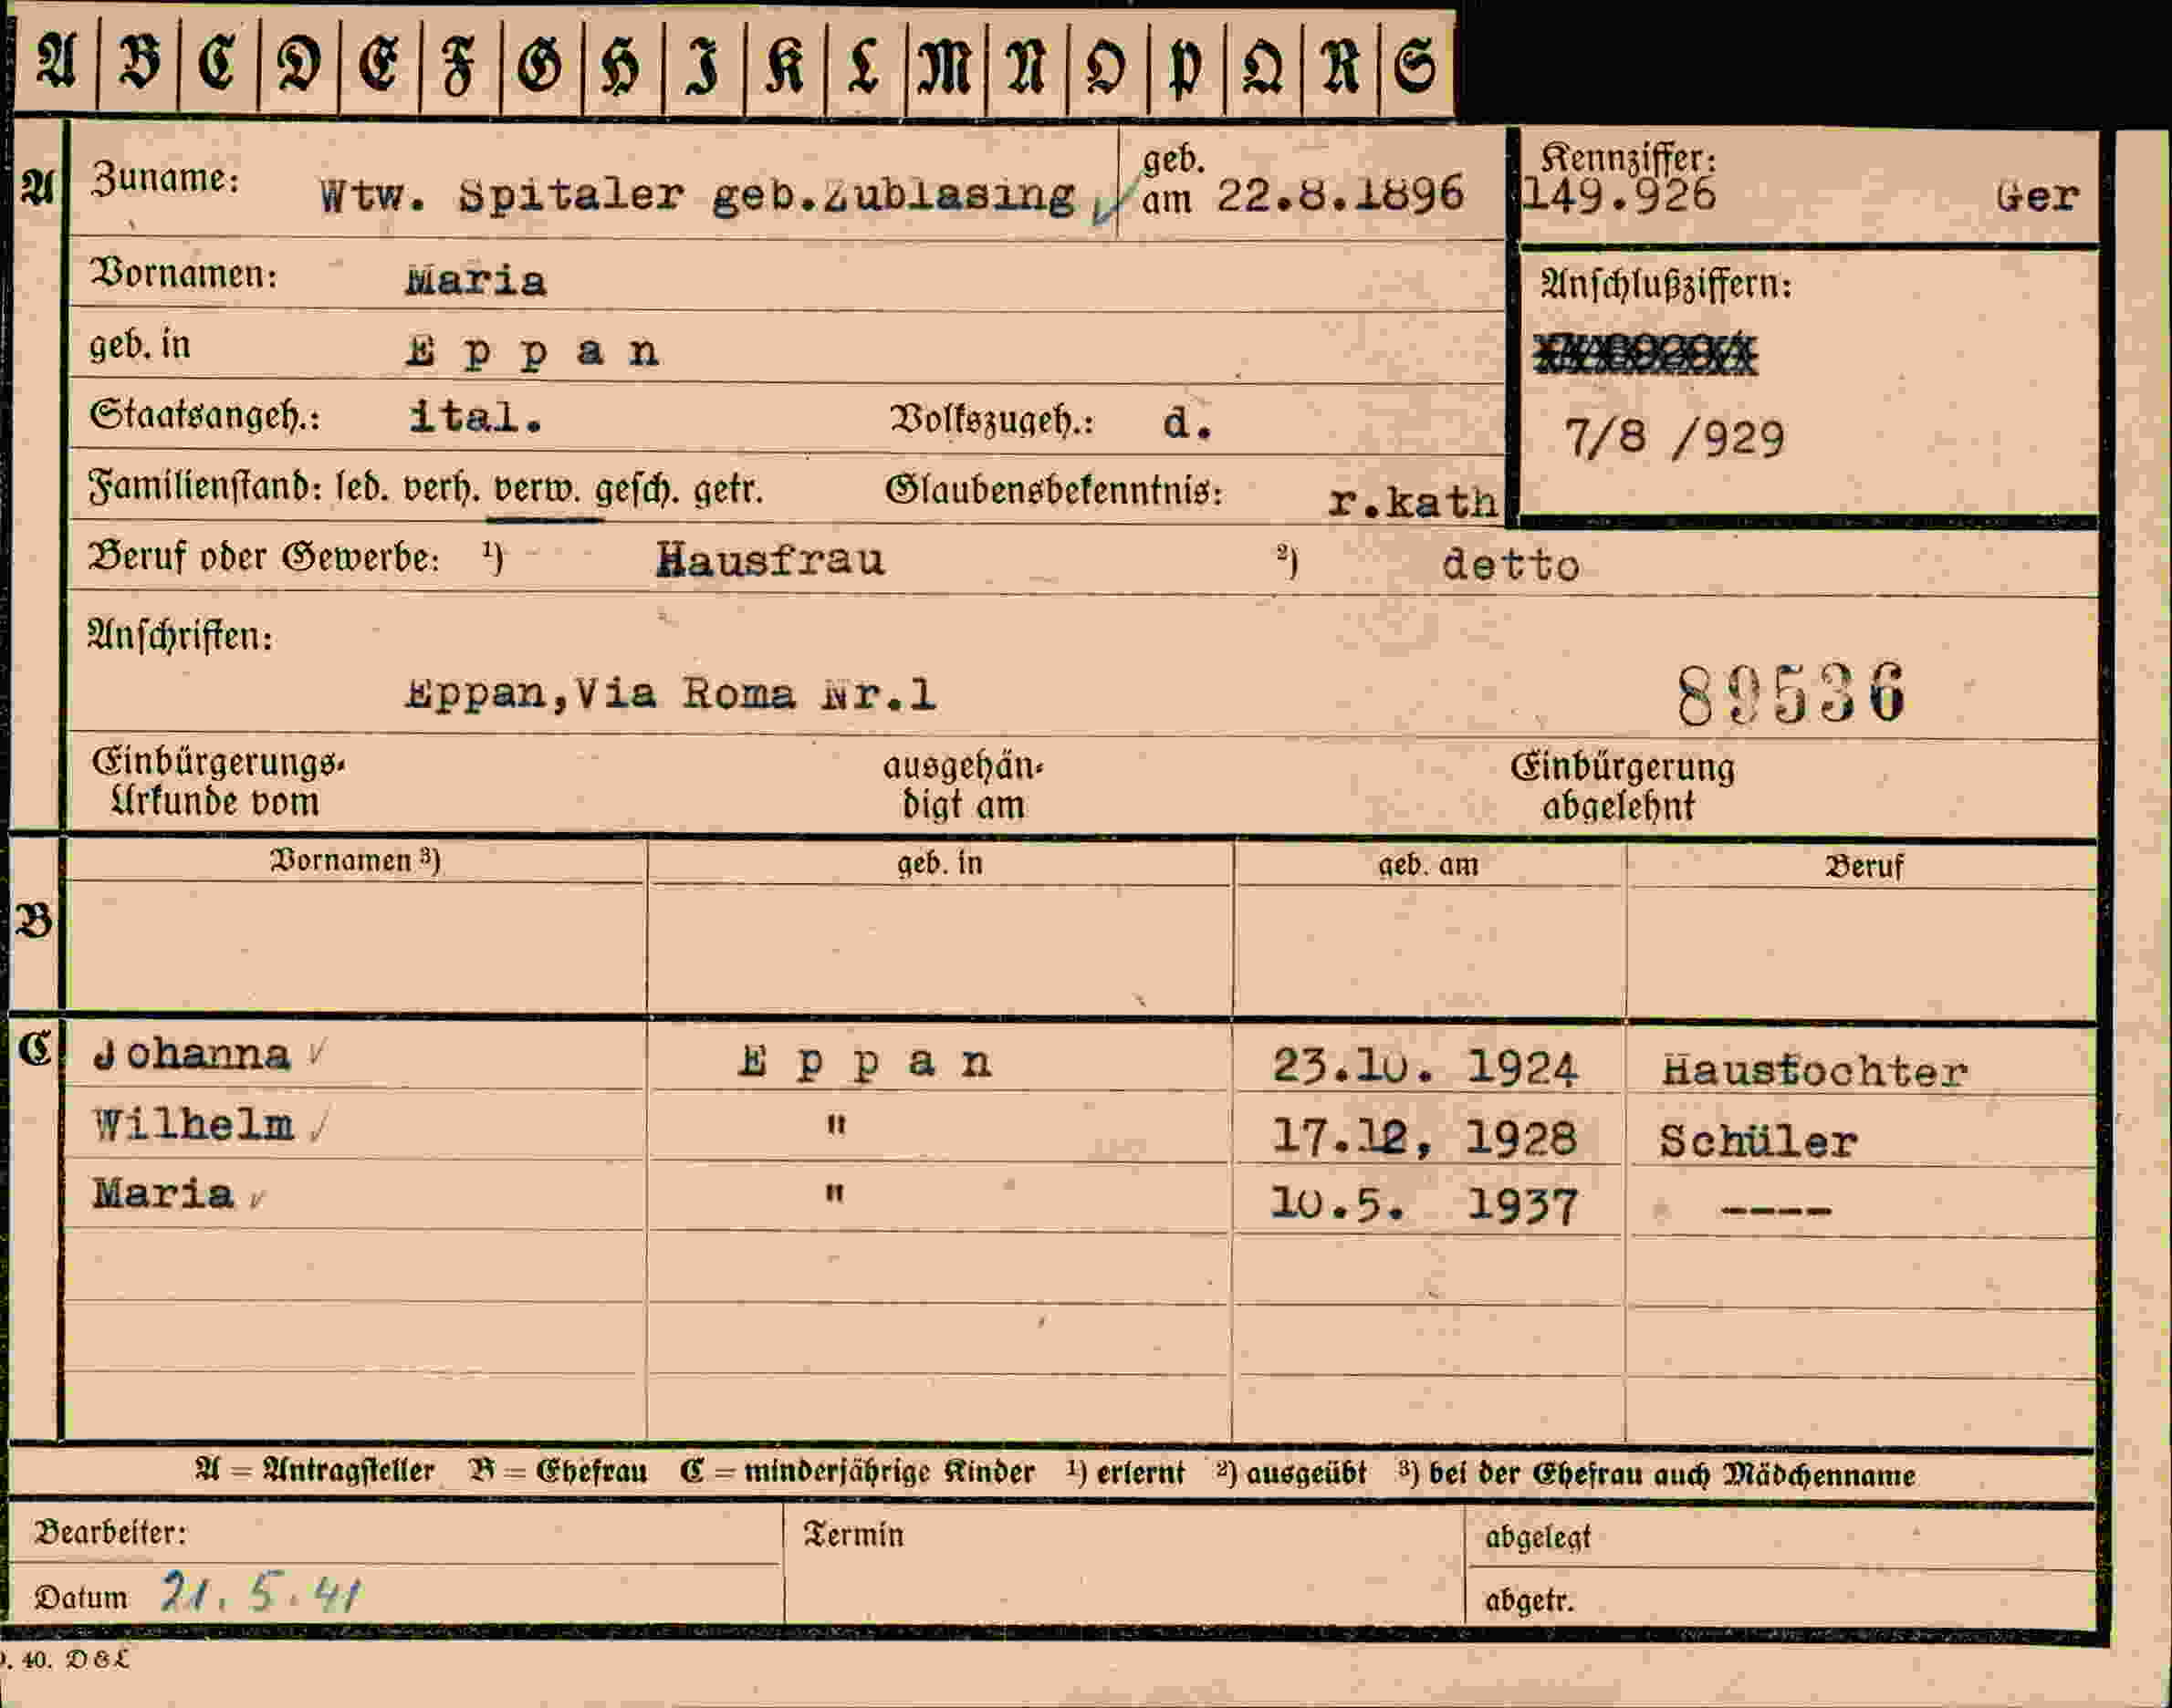 A B C D E F G H I K L M N O P Q R S
A Zuname: Wtw. Spitaler geb.Zublasing, geb. am 22.8.1896
Kennziffer: 149.926 Ger
Vornamen: Maria
Anschlußziffern:
geb. in Eppan
Staatsangeh.: ital. Volkszugeh.: d.
7/8 /929
Familienstand: led. verh. verw. gesch. getr. Glaubensbekenntnis: r.kath
Beruf oder Gewerbe: 1) Hausfrau 2) detto
Anschriften:
Eppan,Via Roma Nr.1 89536
Einbürgerungs-Urkunde vom ausgehän-digt am Einbürgerung abgelehnt
Vornamen 3) geb. in geb. am Beruf
B
C Johanna Eppan 23.10. 1924 Haustochter
Wilhelm " 17.12, 1928 Schüler
Maria " 10.5. 1937 ----
A = Antragsteller B = Ehefrau C = minderjährige Kinder 1) erlernt 2) ausgeübt 3) bei der Ehefrau auch Mädchenname
Bearbeiter: Termin abgelegt
Datum 21.5.41 abgetr.
. 40. D&L